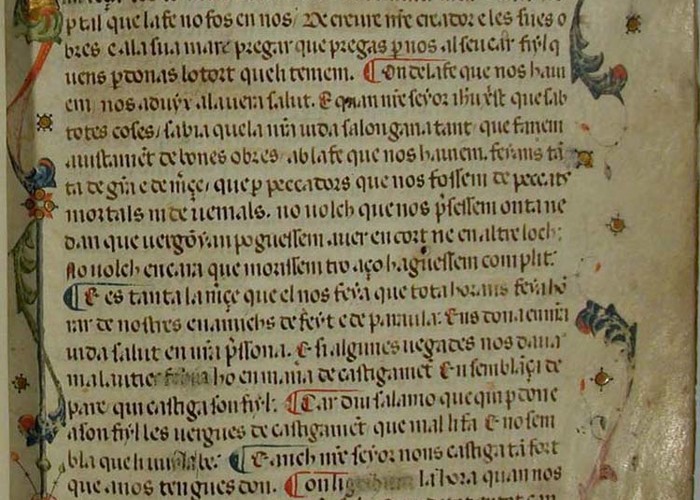 ptal que la fe no fos en nos / De creure nr̃e creador e les sues o
bres e a la sua mare pregar que pregas ꝑ nos al seu car fiyl q̃
uens ꝑdonas lo tort queli teniem. On de la fe que nos hauı
em nos aduyx a la uera salut. E quan nr̃e seyor ihũ xp̃st que sab
totes coses / sabia que la nr̃a uida salonga na tant / que farıem
aiustamẽt de bones obres / ab la fe que nos hauıem. feyans tã
ta de gr̃a e de m̃çe / que ꝑ peccadors que nos fossem de peccats
mortals ni de uenials. no uolch que nos p̃sessem onta ne
dan que uergõyan poguessem auer en cort ne en altre loch:
No uolch encara que morissem tro aço haguessem complit:
E es tanta la m̃çe que el nos feya que tota hora ns feya hõ
rar de nostres enamichs de feyt e de paraula: E ns dona en nr̃a
uida salut en nr̃a p̃ssona. E si algunes uegades nos daua
malautie ho en mana de castigamẽt En semblãça de
pare qui castiga son fiyl: Car diu salamo que qui ꝑdone
a son fiyl les uergues de castigamẽt que mal li fa E no sem
bla que li be: E anch nr̃e seyor nons castiga tã fort
que anos tengues don. On li la hora quan nos